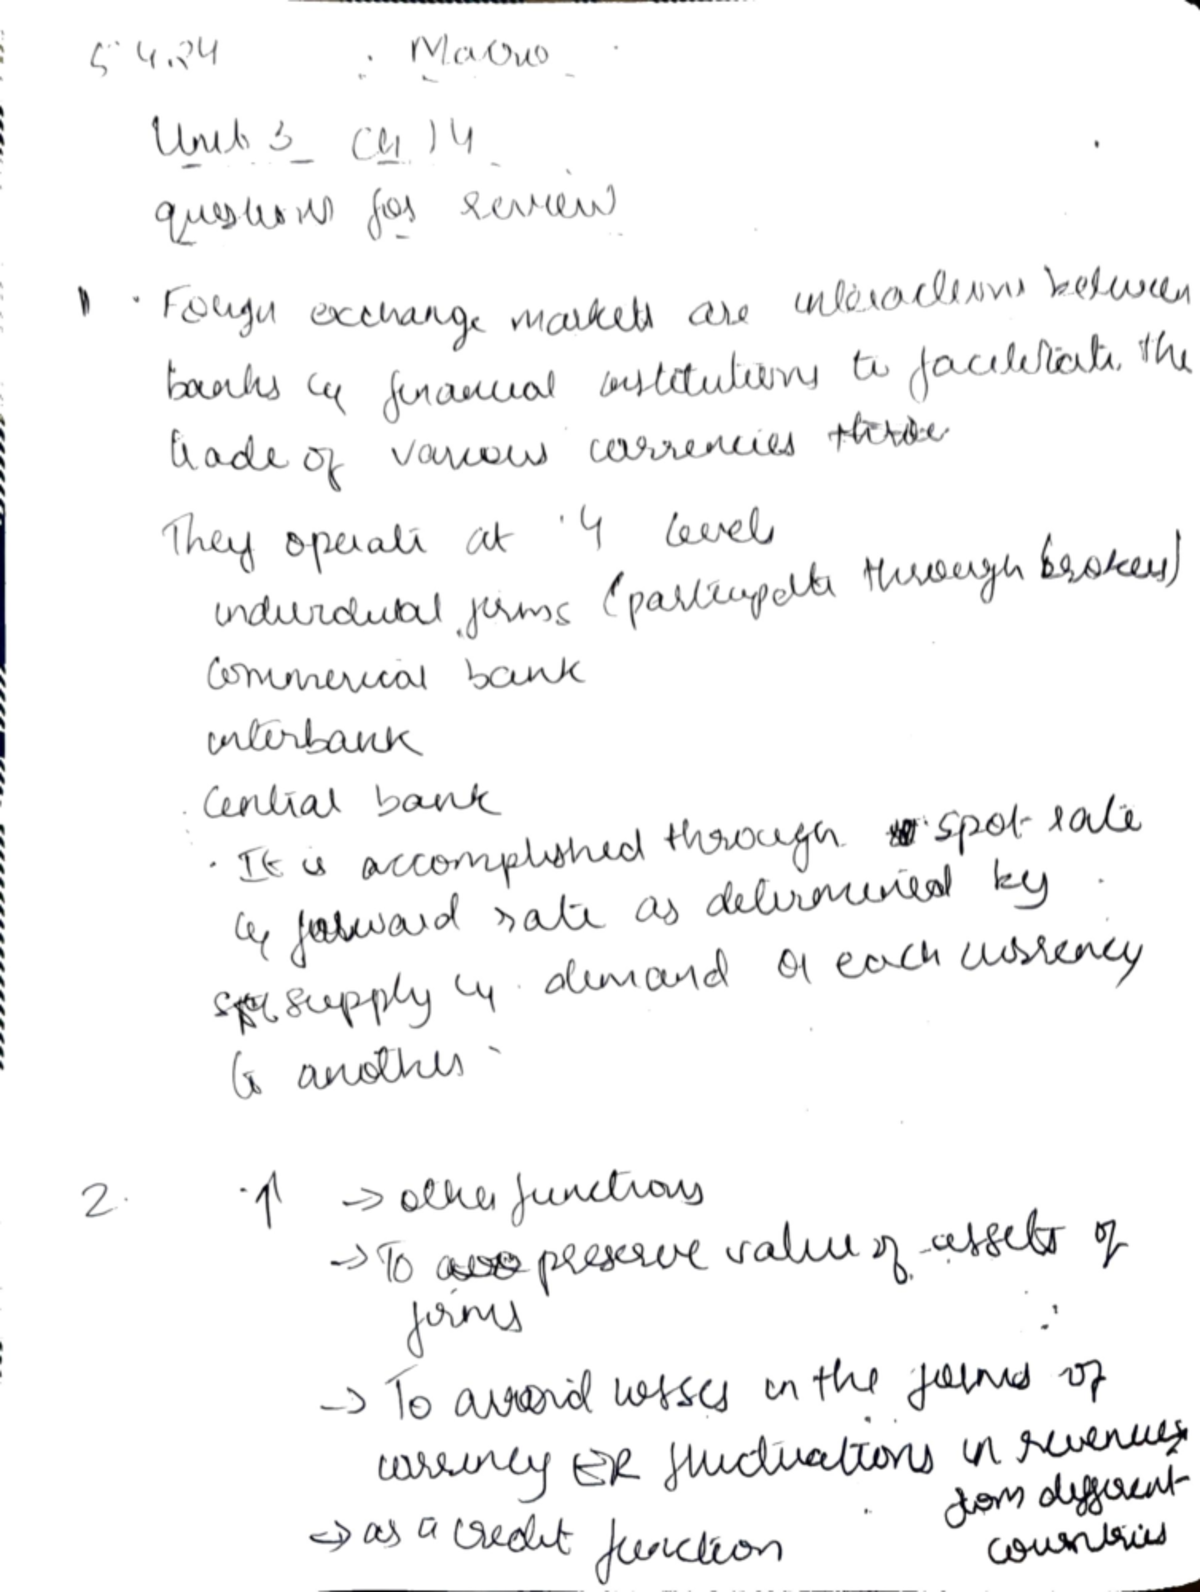 5 4.24 Macro
Unit 3 Ch 14
questions for review
1) Foreign exchange markets are interactions between
banks & financial institutions to facilitate the
trade of various currencies
They operate at 4 levels
individual firms (participate through brokers)
Commercial bank
interbank
Central bank
It is accomplished through spot rate
& forward rate as determined by
supply & demand of each currency
to another
2. ↑ → other functions
→ To preserve value of assets of
firms
→ To avoid losses in the forms of
currency ER fluctuations in revenues
from different
countries
→ as a credit function